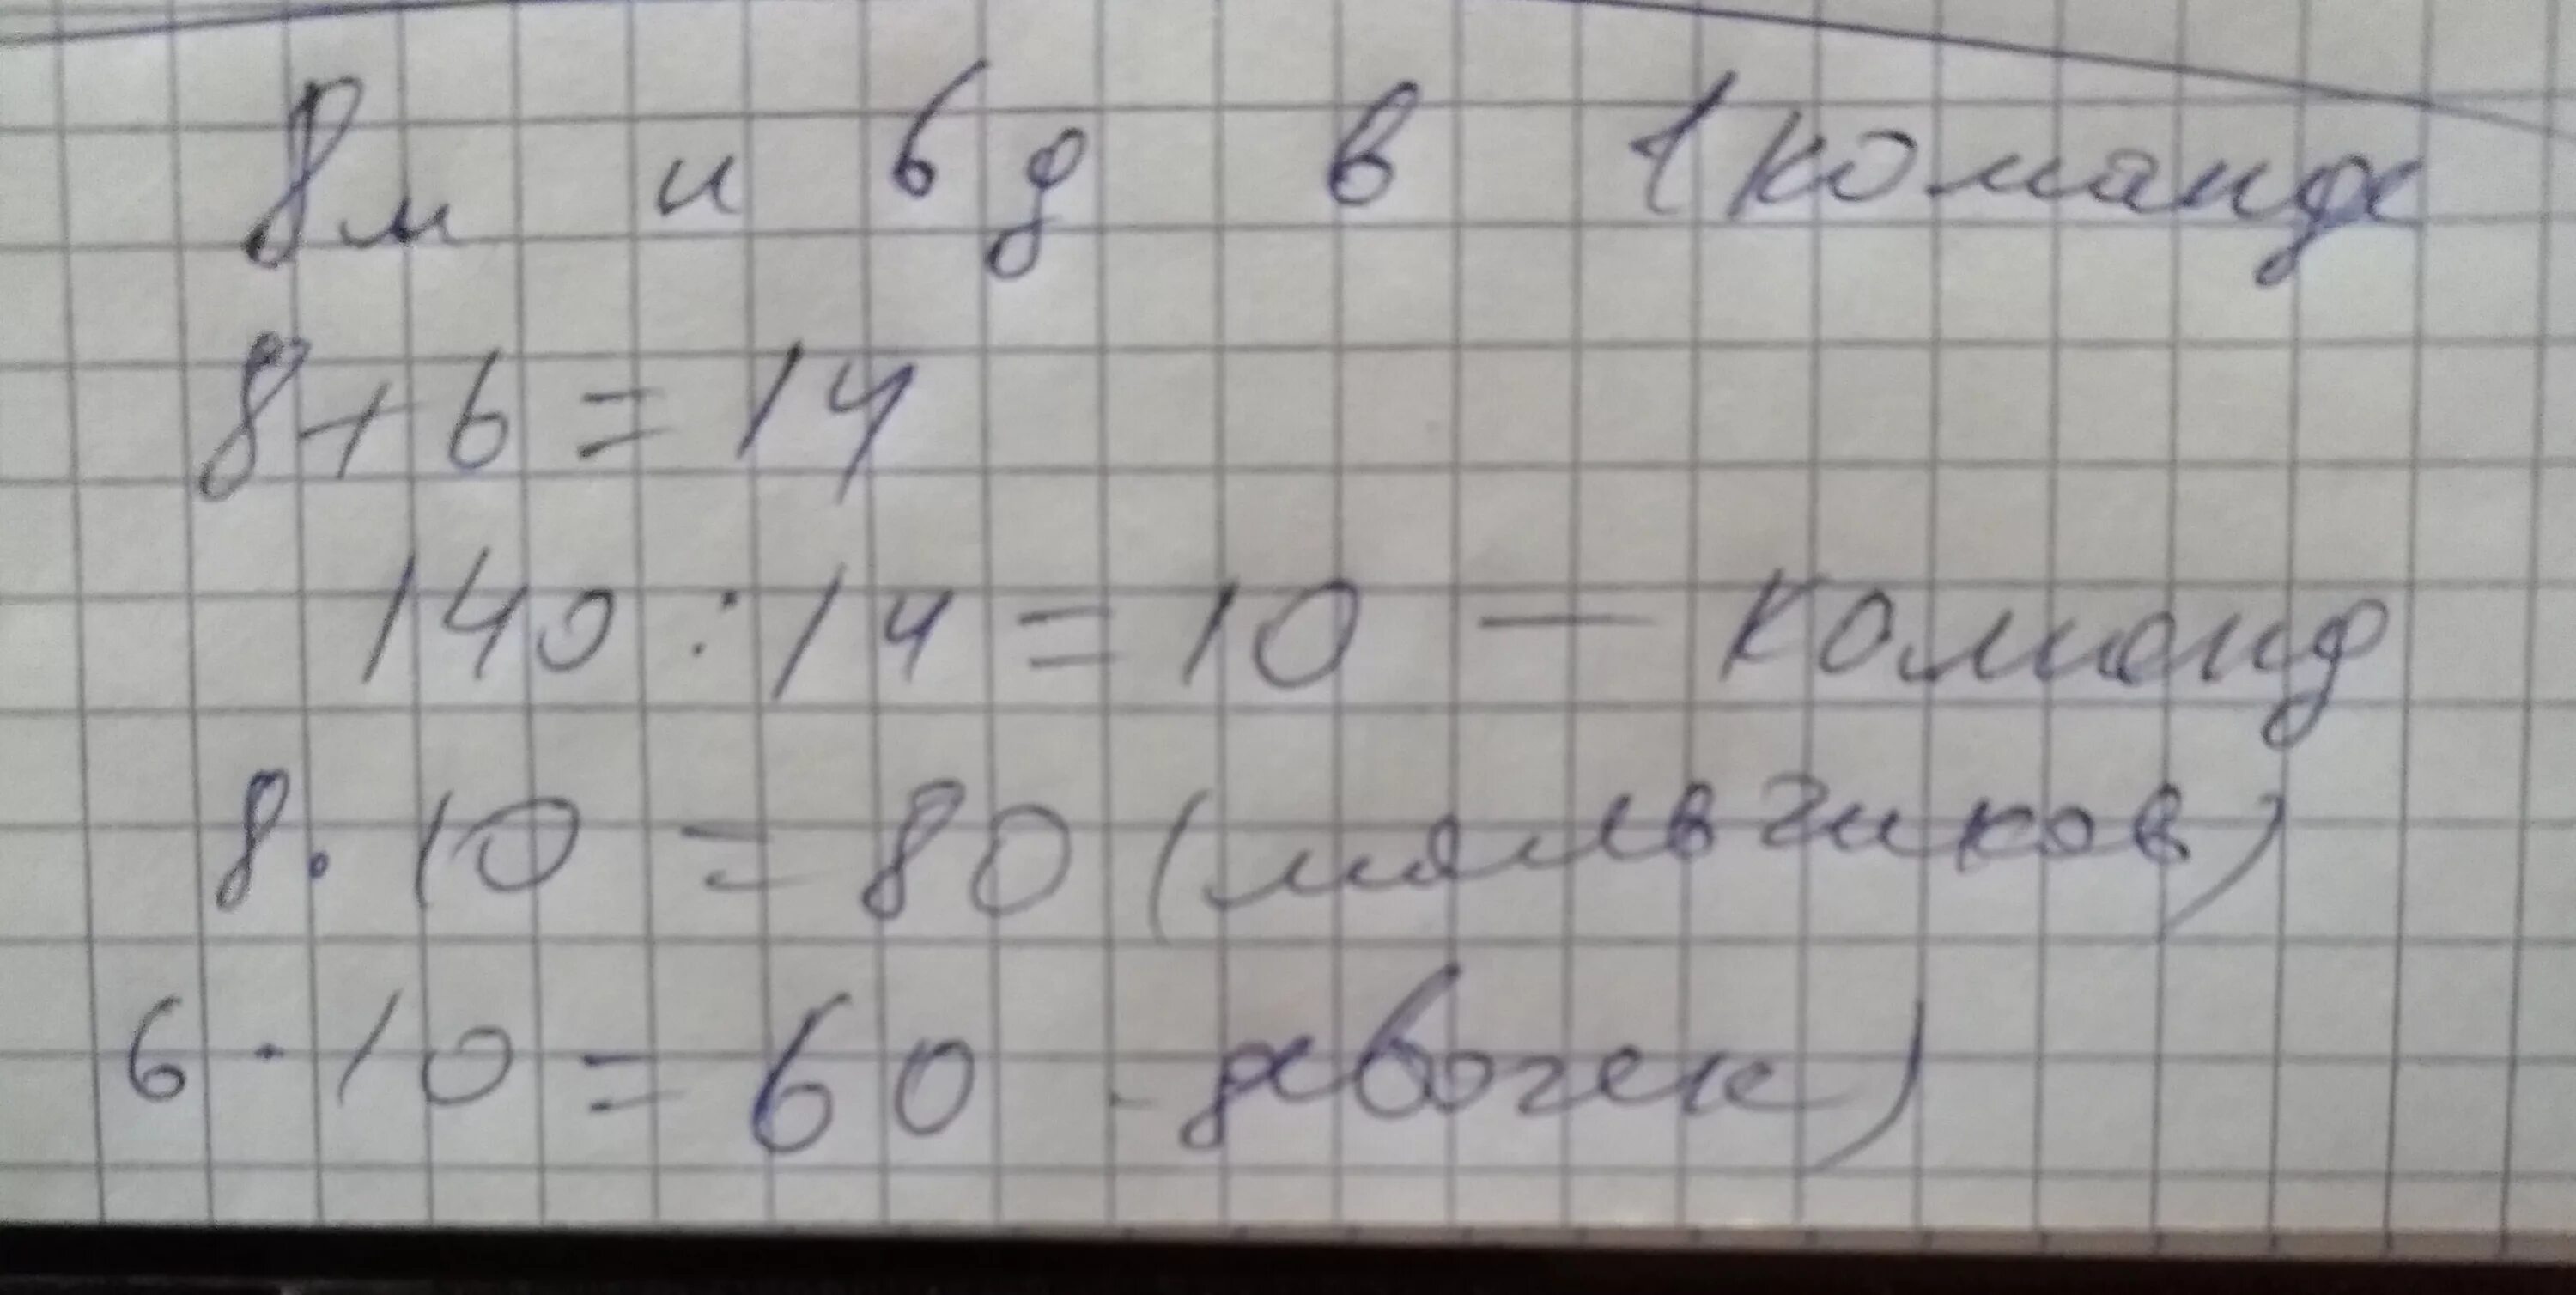 8м и 6д в 1 команде
8+6=14
140:14=10 — команд
8·10=80 (мальчиков)
6·10=60 - девочек)